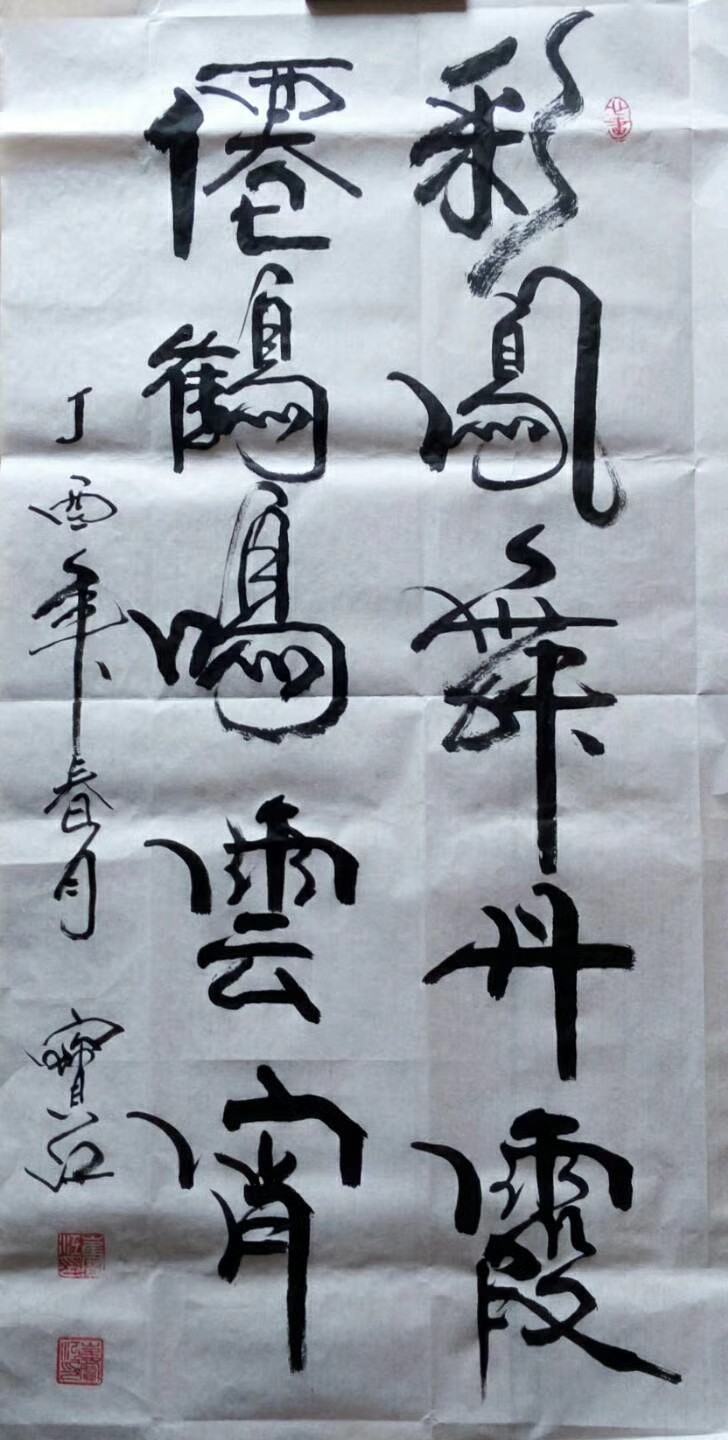 彩鳳舞丹霞
僊鶴鳴雲霄
丁酉年春月 寶江